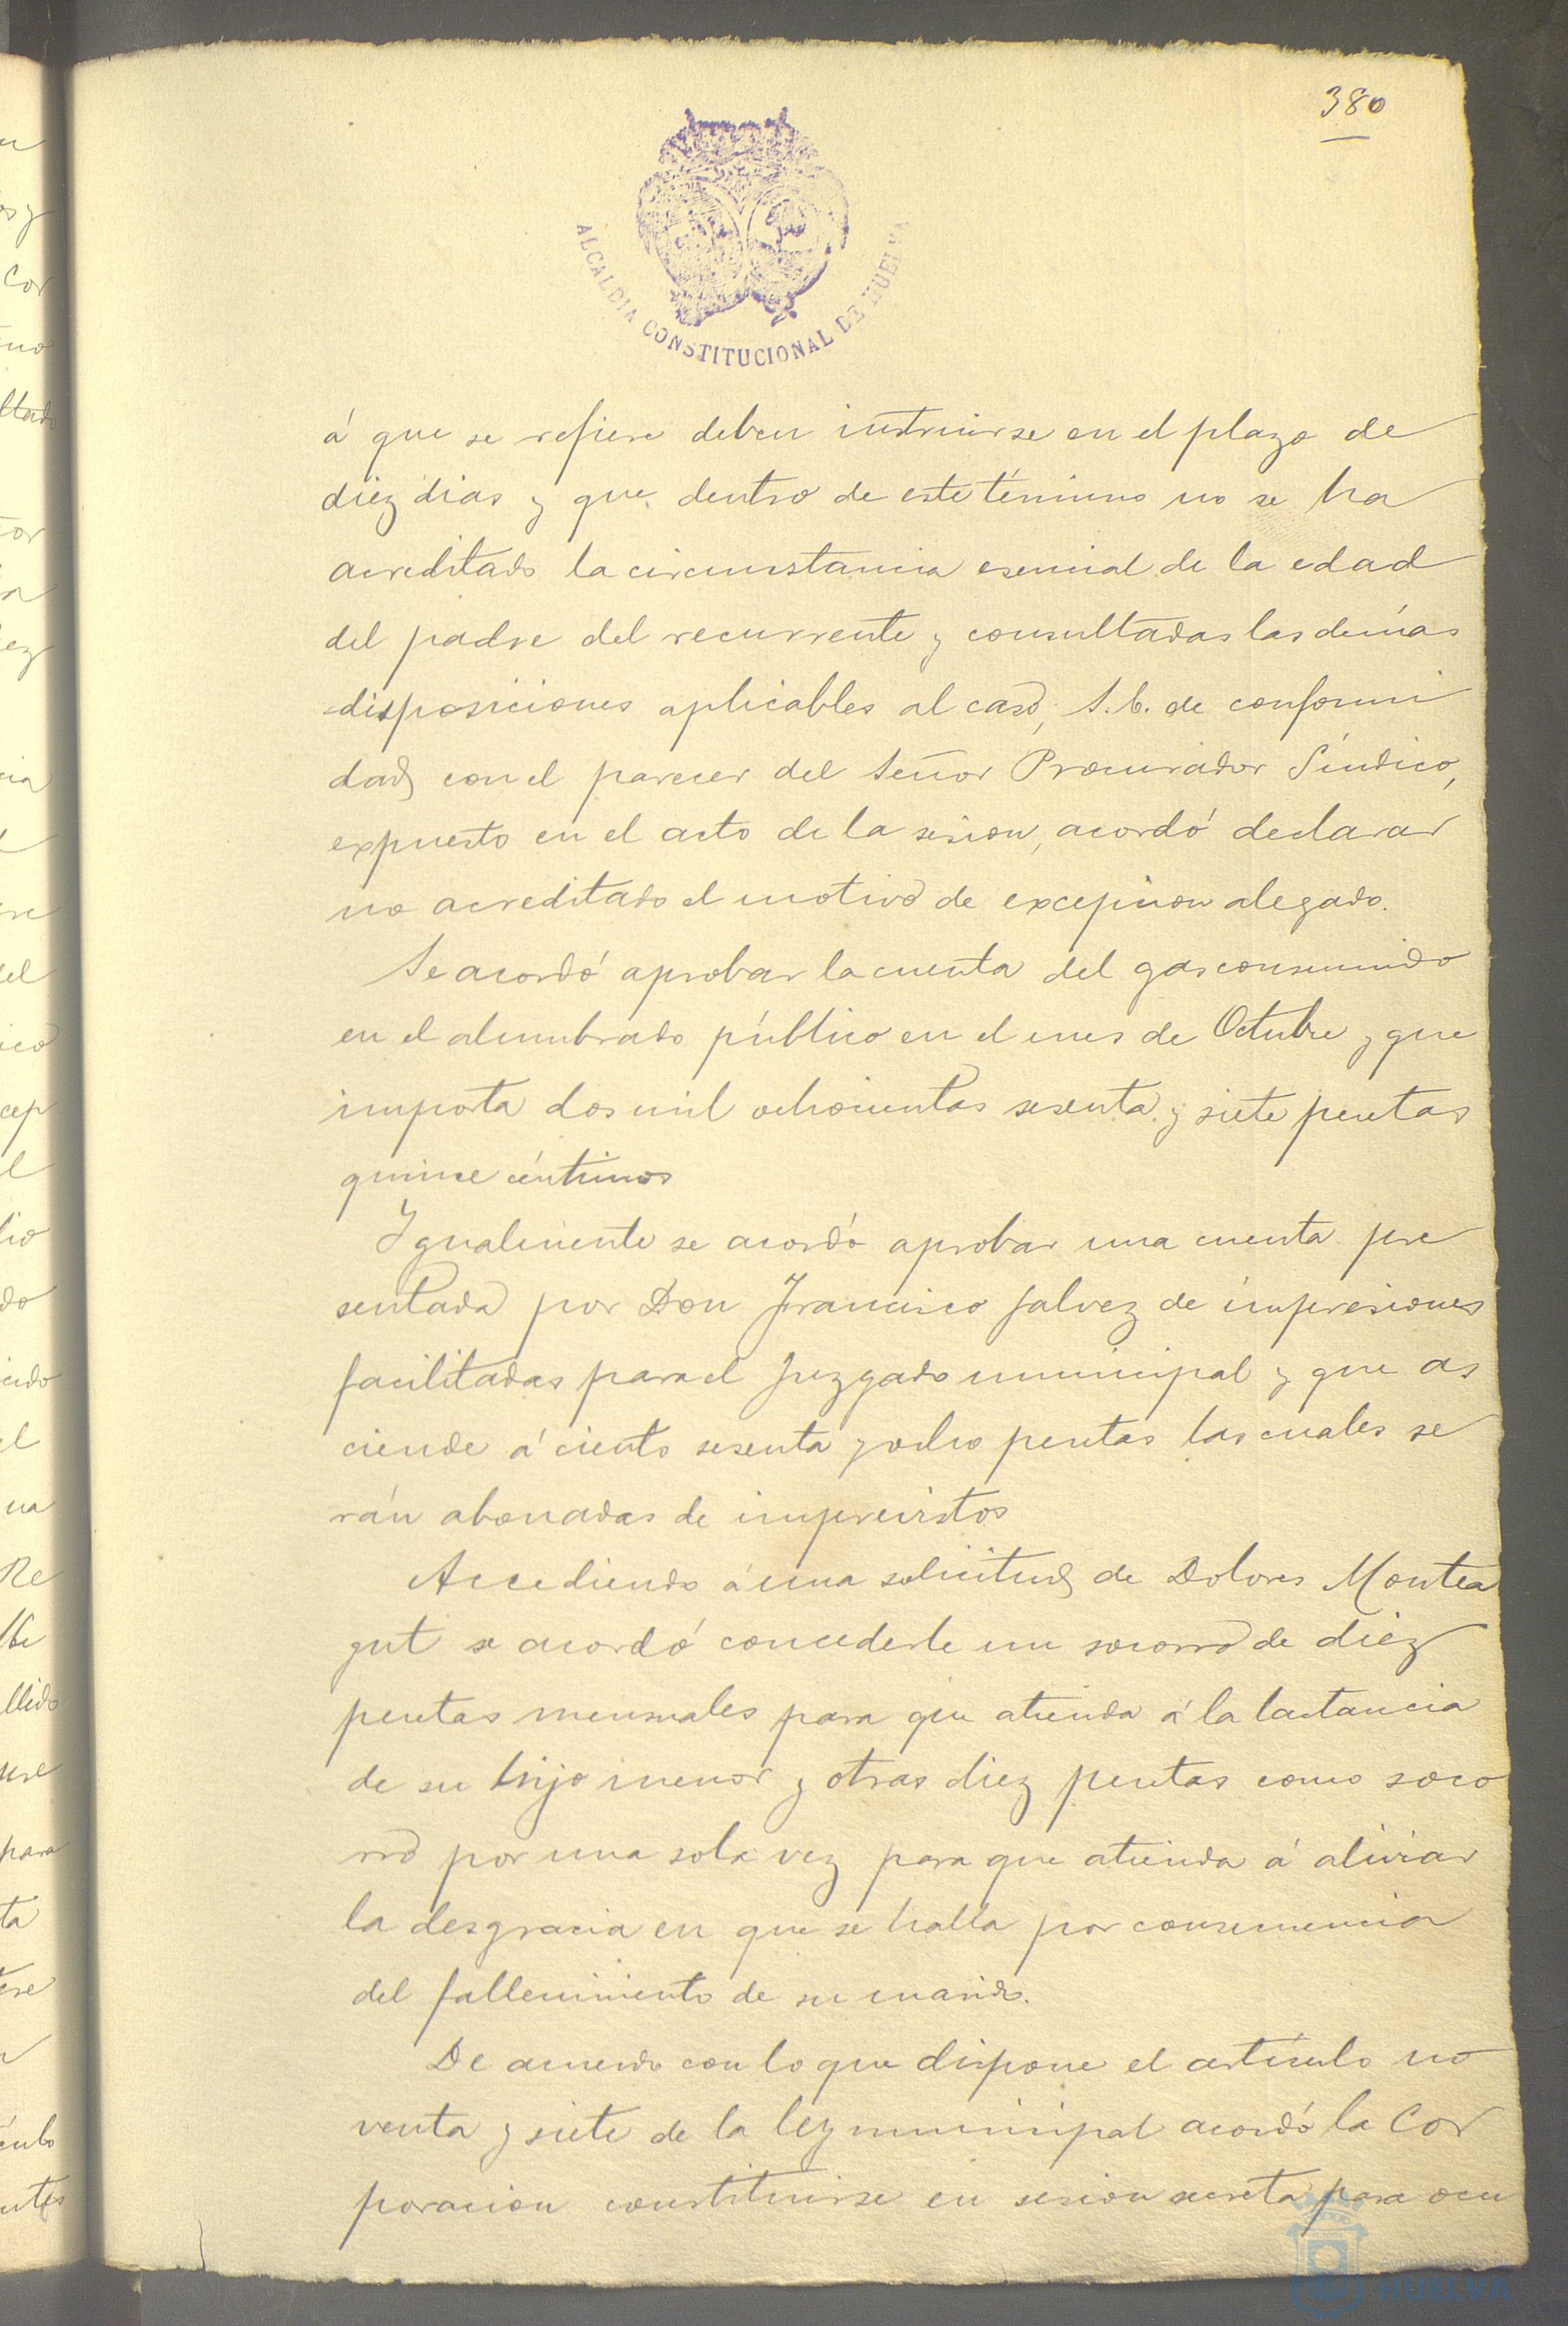 380
ALCALDIA CONSTITUCIONAL DE HUELVA
á que se refiere deben instruirse en el plazo de
diez dias y que dentro de este término no se ha
acreditado la circunstancia esencial de la edad
del padre del recurrente y consultadas las demás
disposiciones aplicables al caso, S. E. de conformi
dad con el parecer del Señor Procurador Síndico,
expuesto en el acto de la sesion, acordó declarar
no acreditado el motivo de excepcion alegado.
Se acordó aprobar la cuenta del gas consumido
en el alumbrado público en el mes de Octubre y que
importa dos mil ochocientas sesenta y siete pesetas
quince céntimos
Igualmente se acordó aprobar una cuenta pre
sentada por Don Francisco Galvez de impresiones
facilitadas para el Juzgado municipal y que as
ciende á ciento sesenta y ocho pesetas las cuales se
rán abonadas de imprevistos
Accediendo á una solicitud de Dolores Montea
gut se acordó concederle un socorro de diez
pesetas mensuales para que atienda á la lactancia
de su hijo menor y otras diez pesetas como soco
rro por una sola vez para que atienda á aliviar
la desgracia en que se halla por consecuencia
del fallecimiento de su marido.
De acuerdo con lo que dispone el artículo no
venta y siete de la ley municipal acordó la Cor
poracion constituirse en sesion secreta para ocu
HUELVA